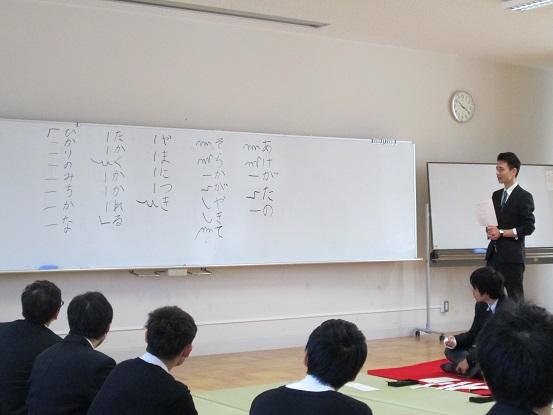 あけがたの
そらかがやきて
やまにつき
たかくかかれる
ひかりのみちかな